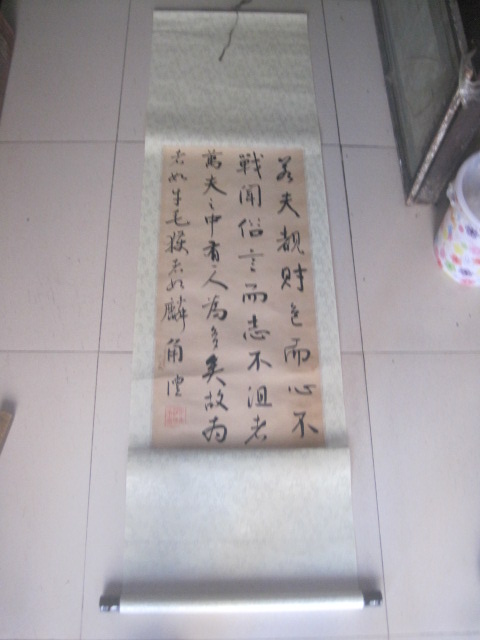 若夫覩財色而心不
戰聞俗言而志不沮者
萬夫之中有一人為多矣故為
者如牛毛獲者如麟角